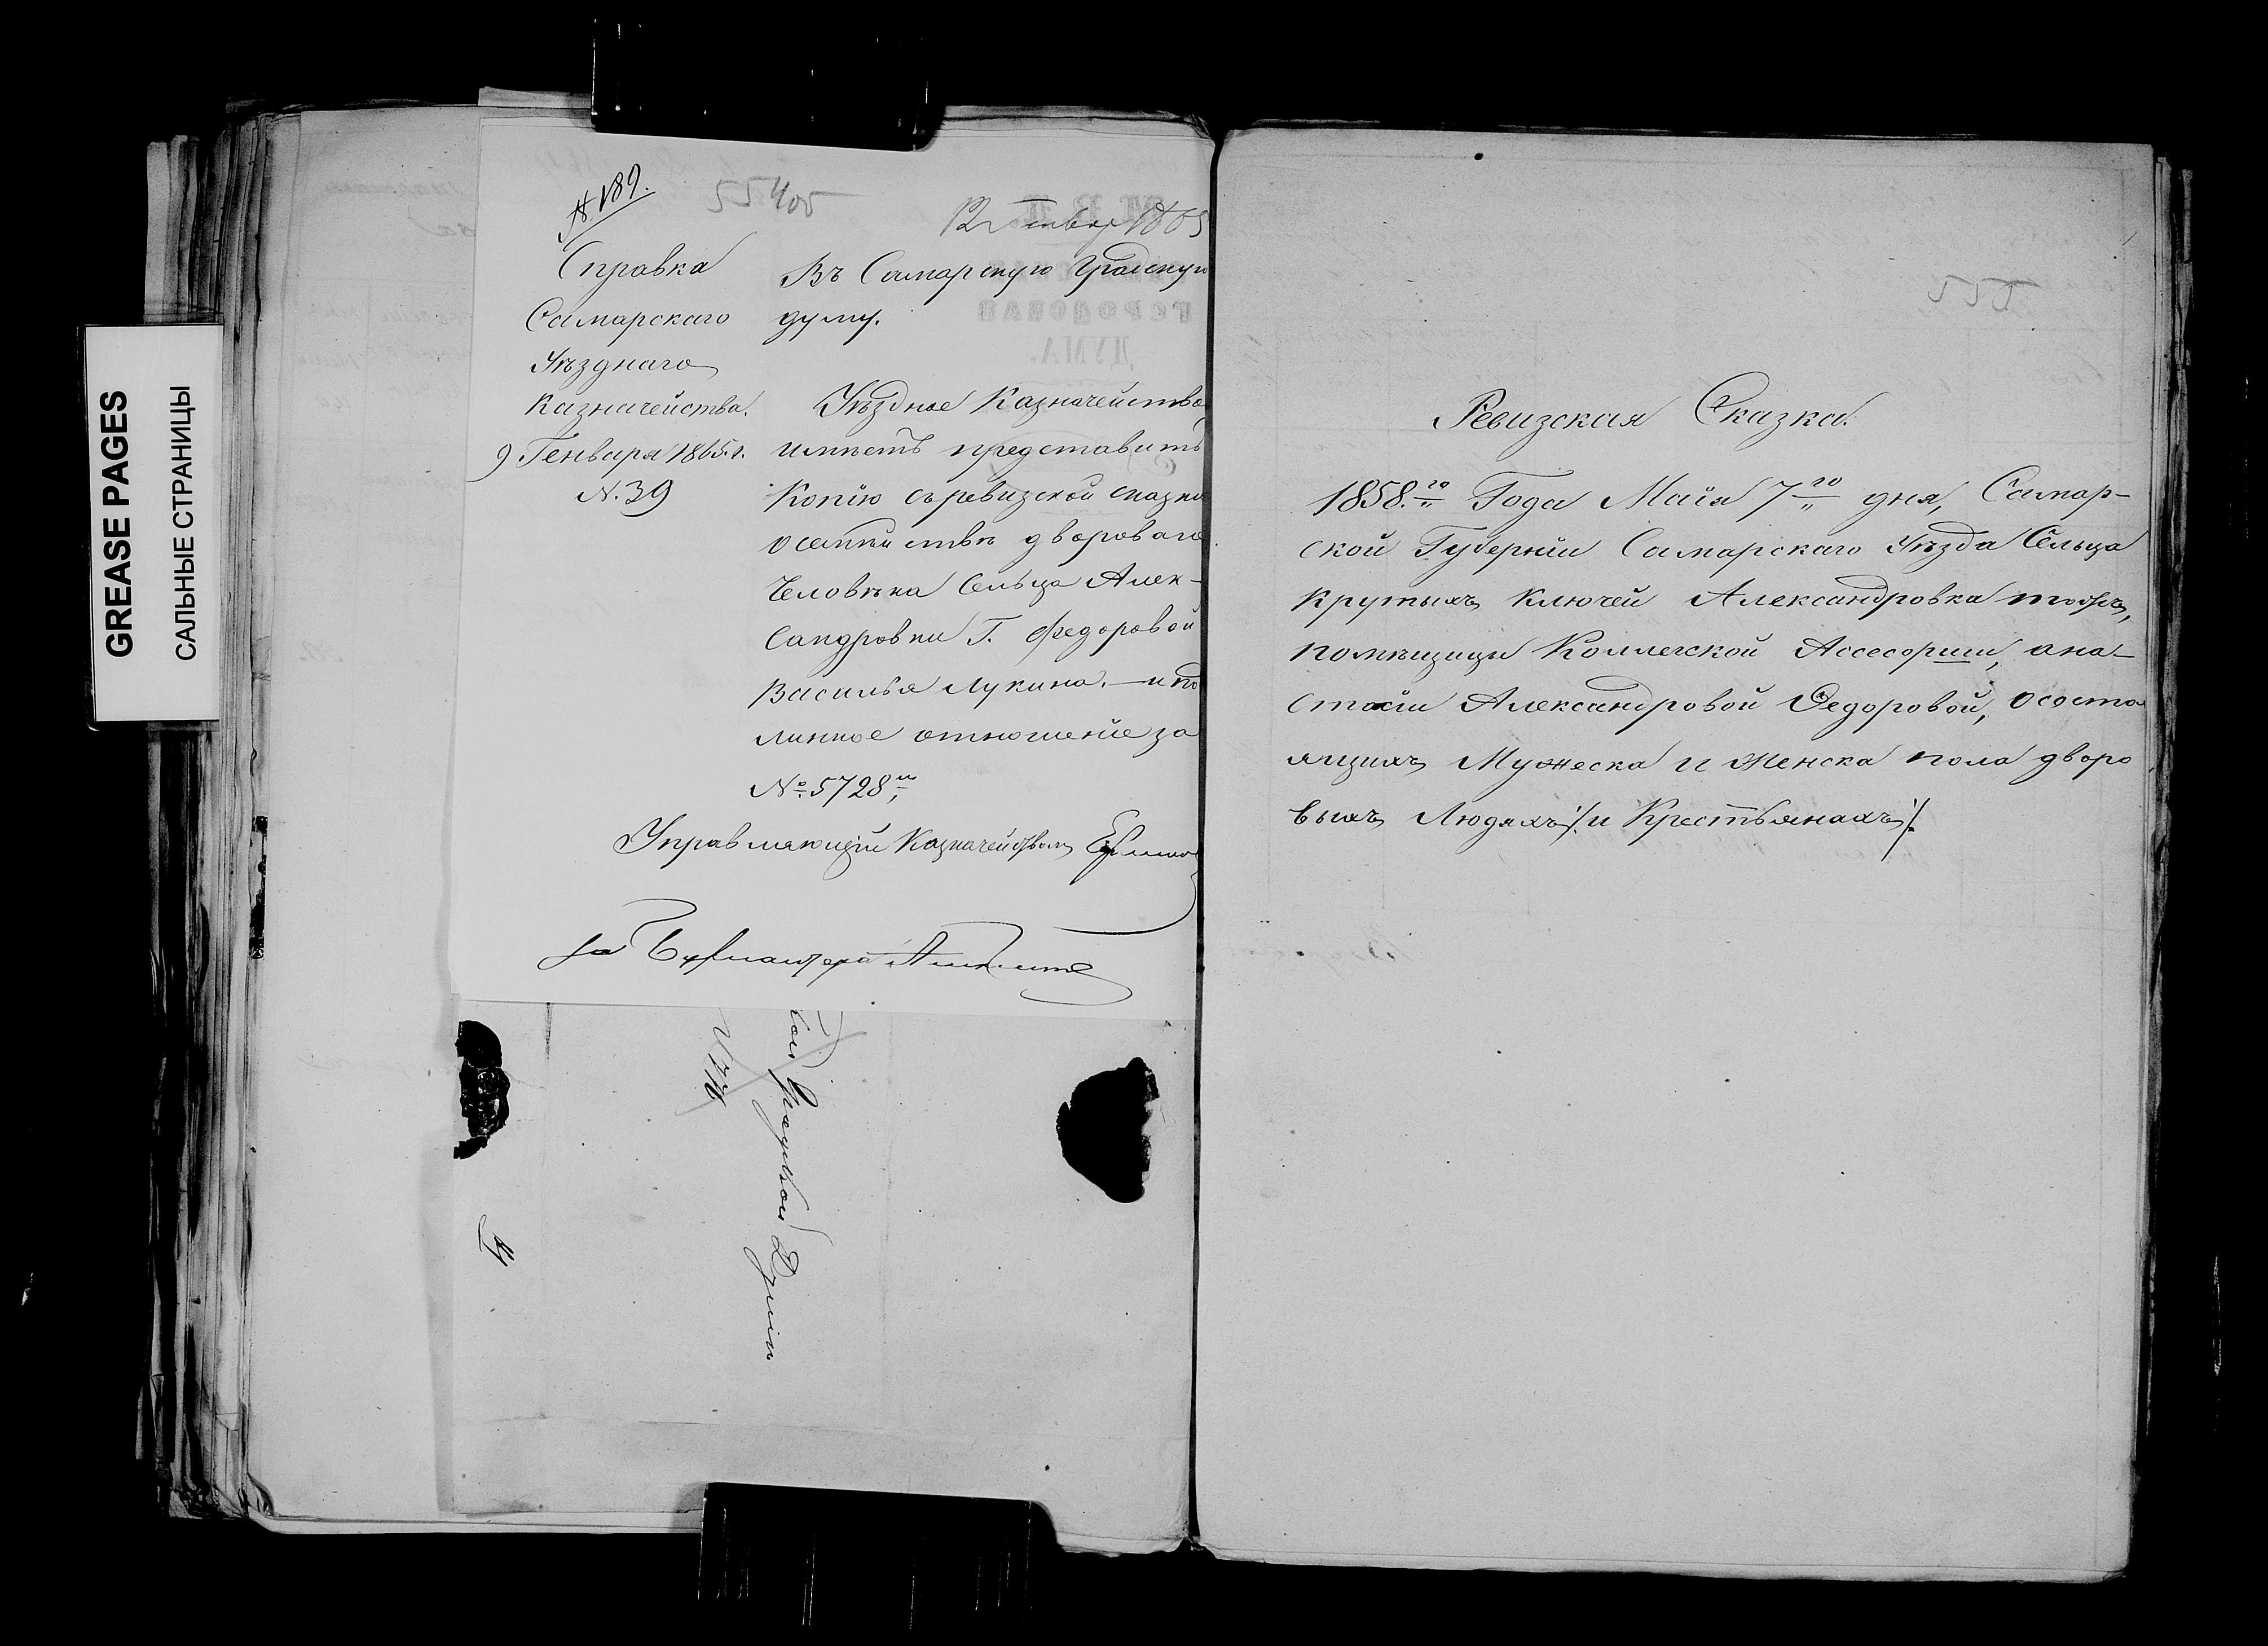 GREASE PAGES
САЛЬНЫЕ СТРАНИЦЫ
№ 189.
55405
12 Генвар 1865
Справка
Самарскаго
Уѣзднаго
Казначейства.
9 Генваря 1865. г.
N. 39
Въ Самарскую Градскую
думу.
Уѣздное Казначейство
имѣетъ представить
Копію съ ревизской сказки
о семействѣ двороваго
Человѣка Сельца Алек-
сандровки Г. Федоровой
Василья Лукина. — и под
линное отношеніе за
№ 5728
Управляющій Казначействомъ
за Бухгалтера
Градской Думы
555
Ревизская Сказка.
1858.го Года Маія 7го дня, Самар-
ской Губерніи Самарскаго Уѣзда Сельца
Крутыхъ Ключей Александровка тожъ,
помѣщицы Коллежской Ассесорши, Ана-
стасіи Александровой Федоровой, о состо
ящихъ Мужеска и Женска пола дворо
выхъ Людяхъ /. и Крестьянахъ /.